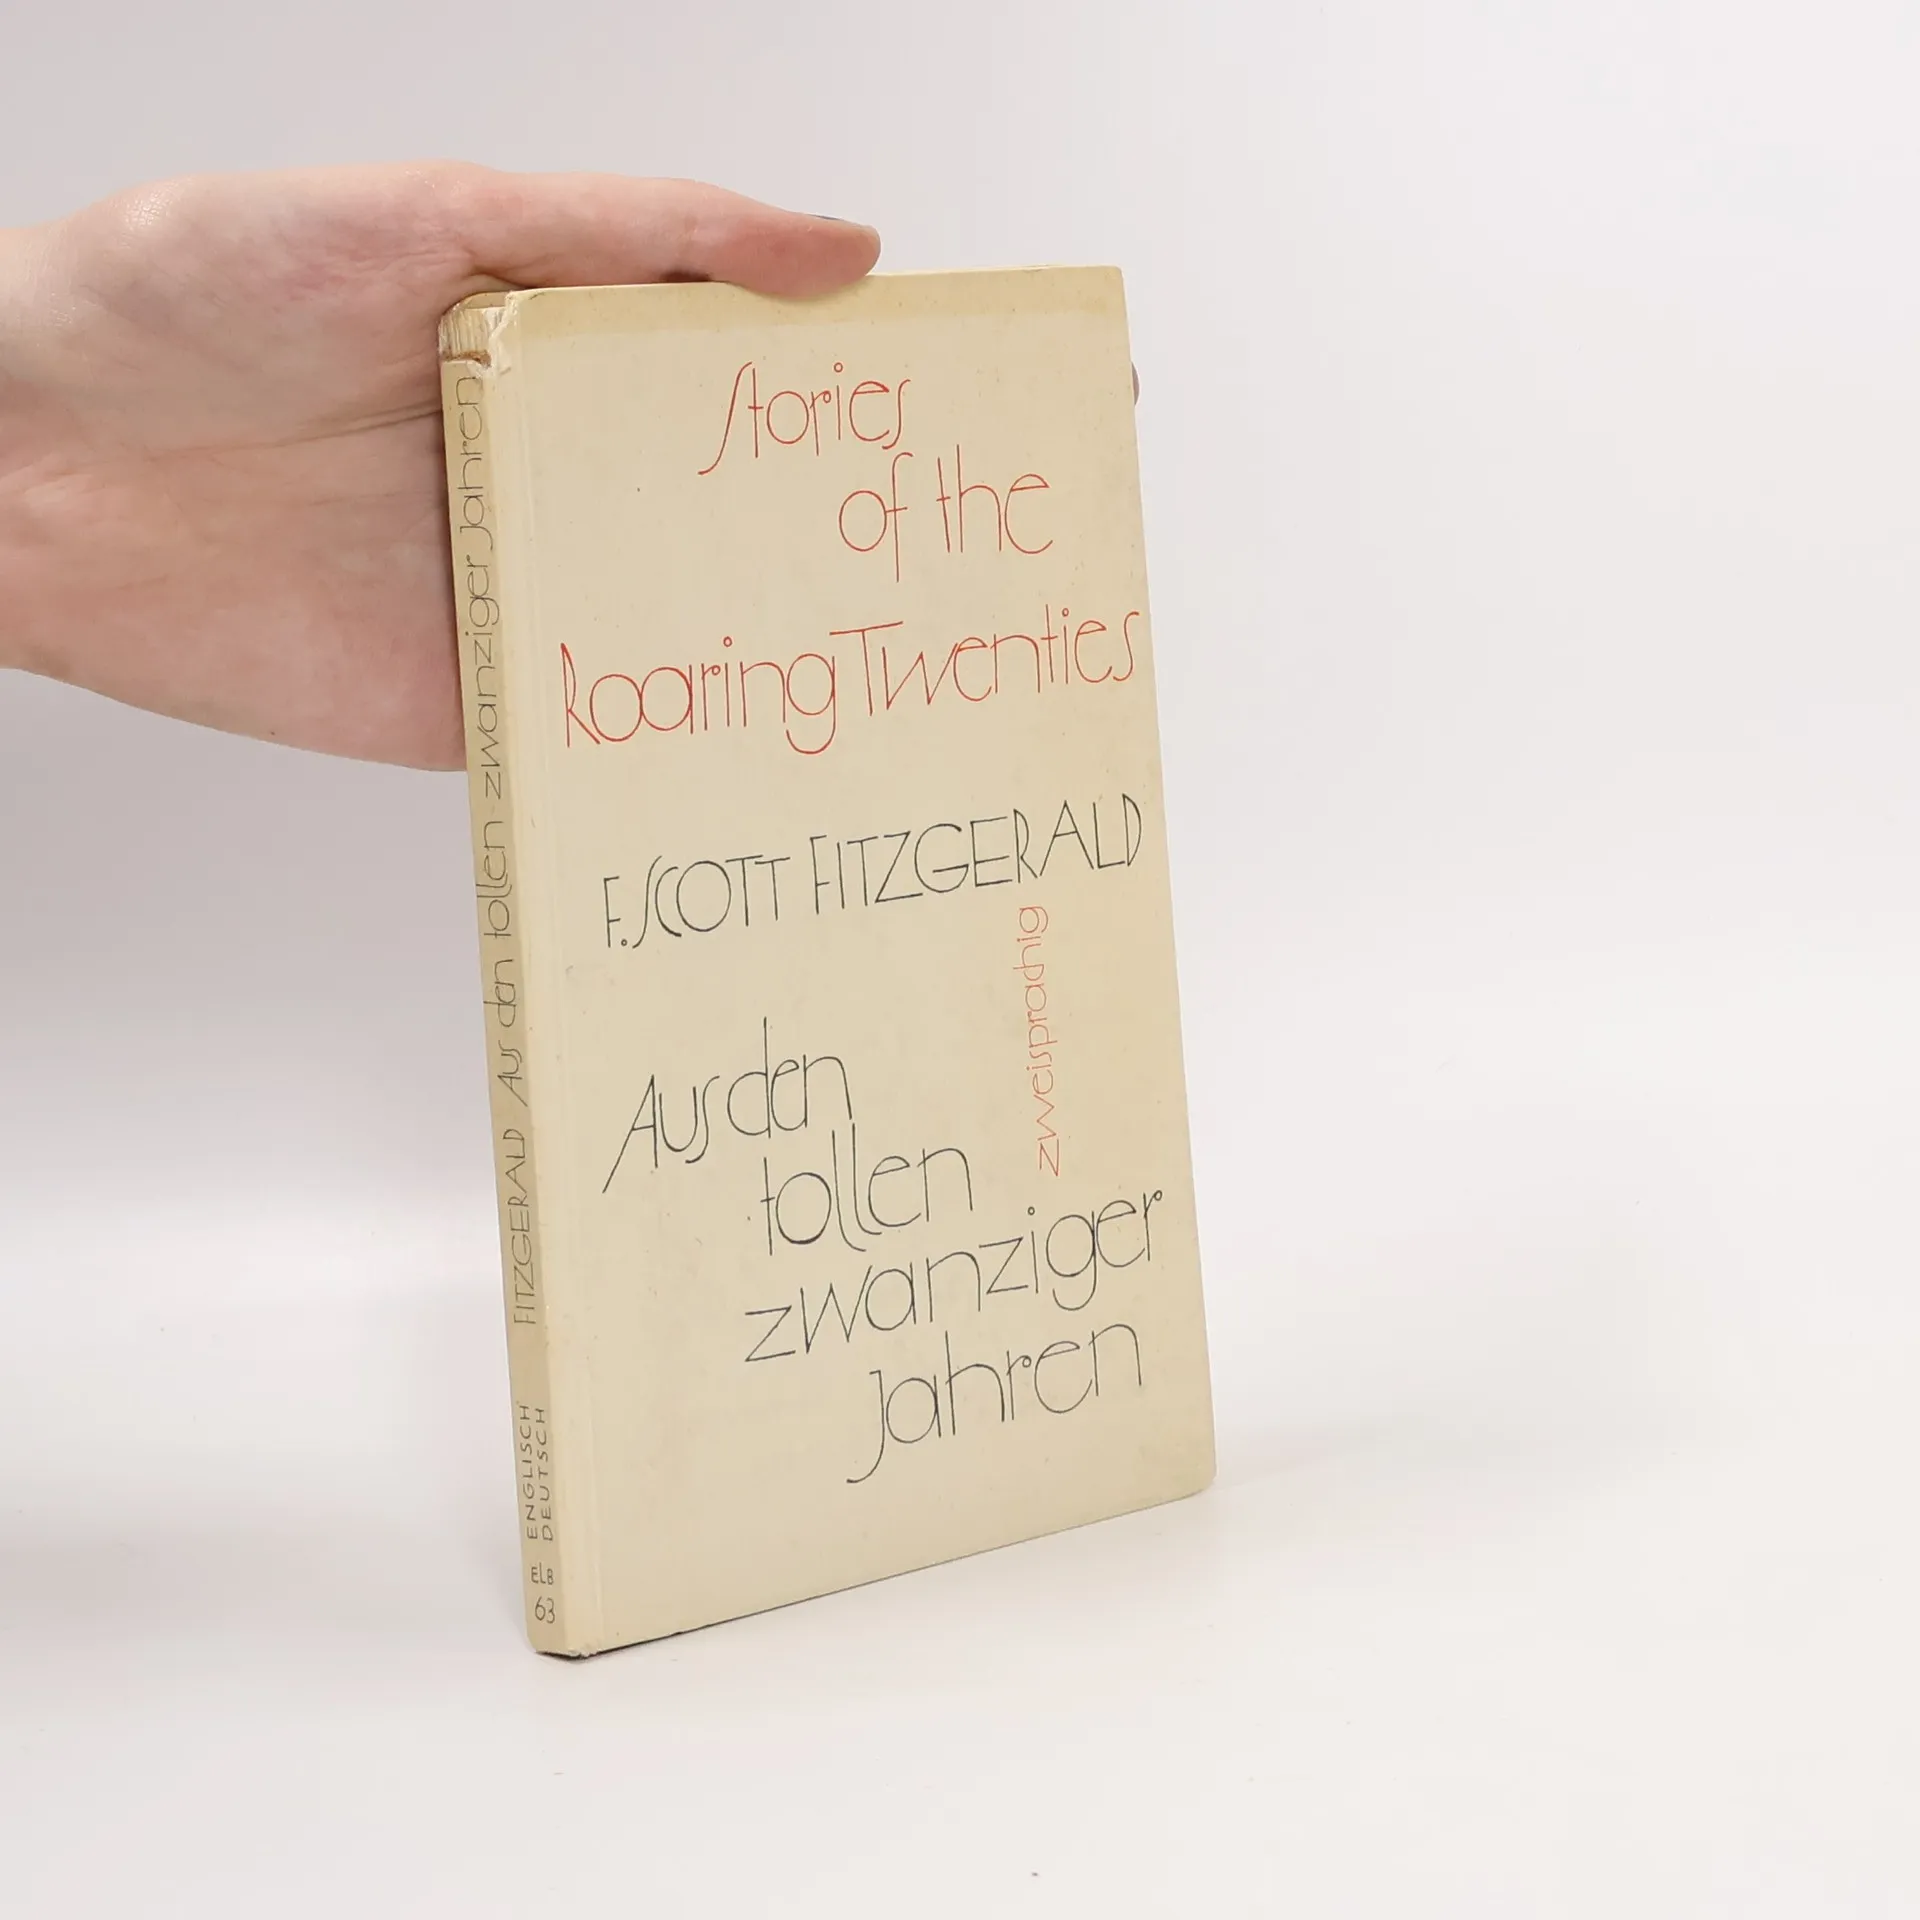 Stories
of the
Roaring Twenties
F. SCOTT FITZGERALD
zweisprachig
Aus den
tollen
zwanziger
Jahren
FITZGERALD Aus den tollen zwanziger Jahren
ENGLISCH
DEUTSCH
ELB
63